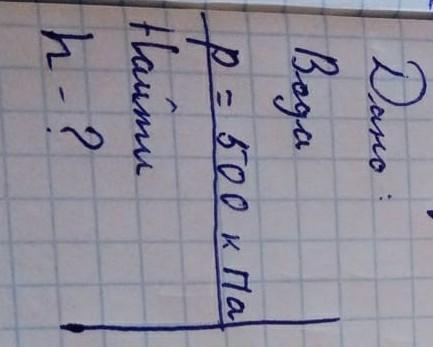 Дано:
Вода
p = 500 к Па
Найти
h - ?